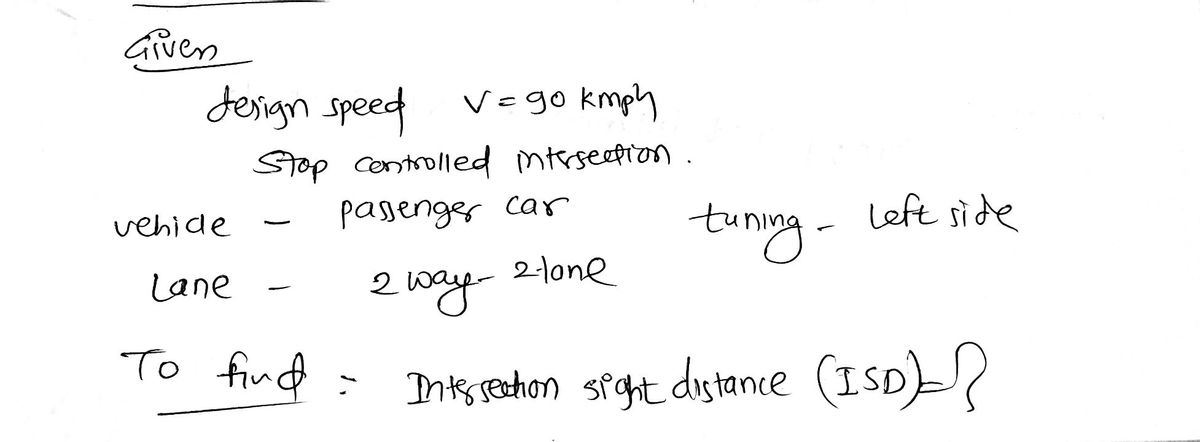 Given
design speed V = 90 kmph
Stop controlled intersection.
vehicle - passenger car tuning - Left side
Lane - 2 way - 2-lane
To find : Intersection sight distance (ISD) = ?